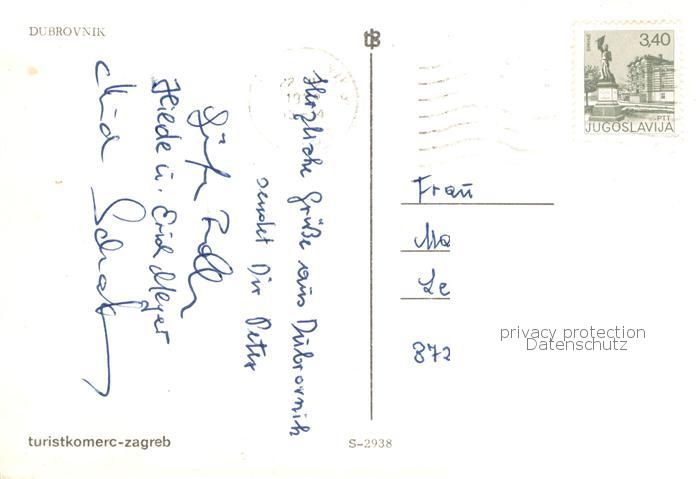 DUBROVNIK
Herzliche Grüße aus Dubrovnik
sendet Dir Peter
Heide u. Erich Meyer
Frau
Ma
Le
872
3,40
PTT
JUGOSLAVIJA
privacy protection
Datenschutz
turistkomerc-zagreb
S-2938